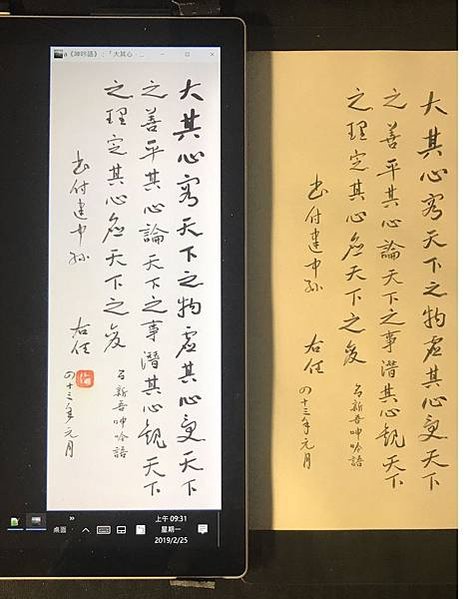 《呻吟語》:「大其心
大其心容天下之物虛其心受天下
之善平其心論天下之事潛其心觀天下
之理定其心應天下之變
呂新吾呻吟語
書付建中孫 右任
四十三年元月
桌面
上午 09:31
星期一
2019/2/25
大其心容天下之物虛其心受天下
之善平其心論天下之事潛其心觀天下
之理定其心應天下之變
呂新吾呻吟語
書付建中孫 右任
四十三年元月